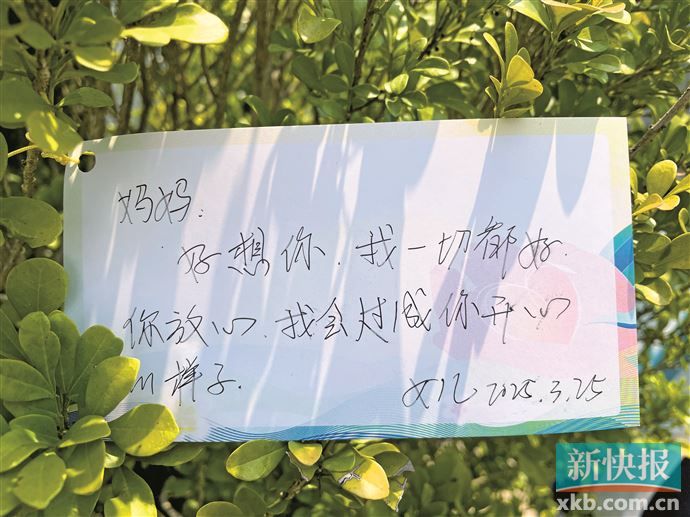 妈妈:
好想你.我一切都好.
你放心.我会过成你开心
的样子.
女儿2025.3.25
新快报
xkb.com.cn